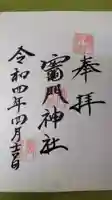 奉拝
竈門神社
令和四年四月十二日